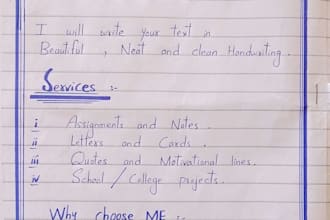 I will write your text in
Beautiful , Neat and clean Handwriting .
Services :-
i Assignments and Notes .
ii Letters and Cards .
iii Quotes and Motivational lines .
iv School / College projects .
Why choose ME :-